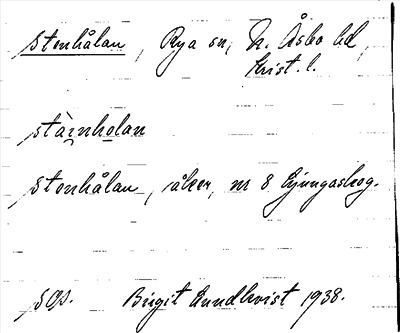 Stenhålan, Rya sn, N. Åsbo hd,
Krist. l.
stäinholan
Stenhålan, åker, nr 8 Ljungaskog.
Birgit Lundkvist 1938.